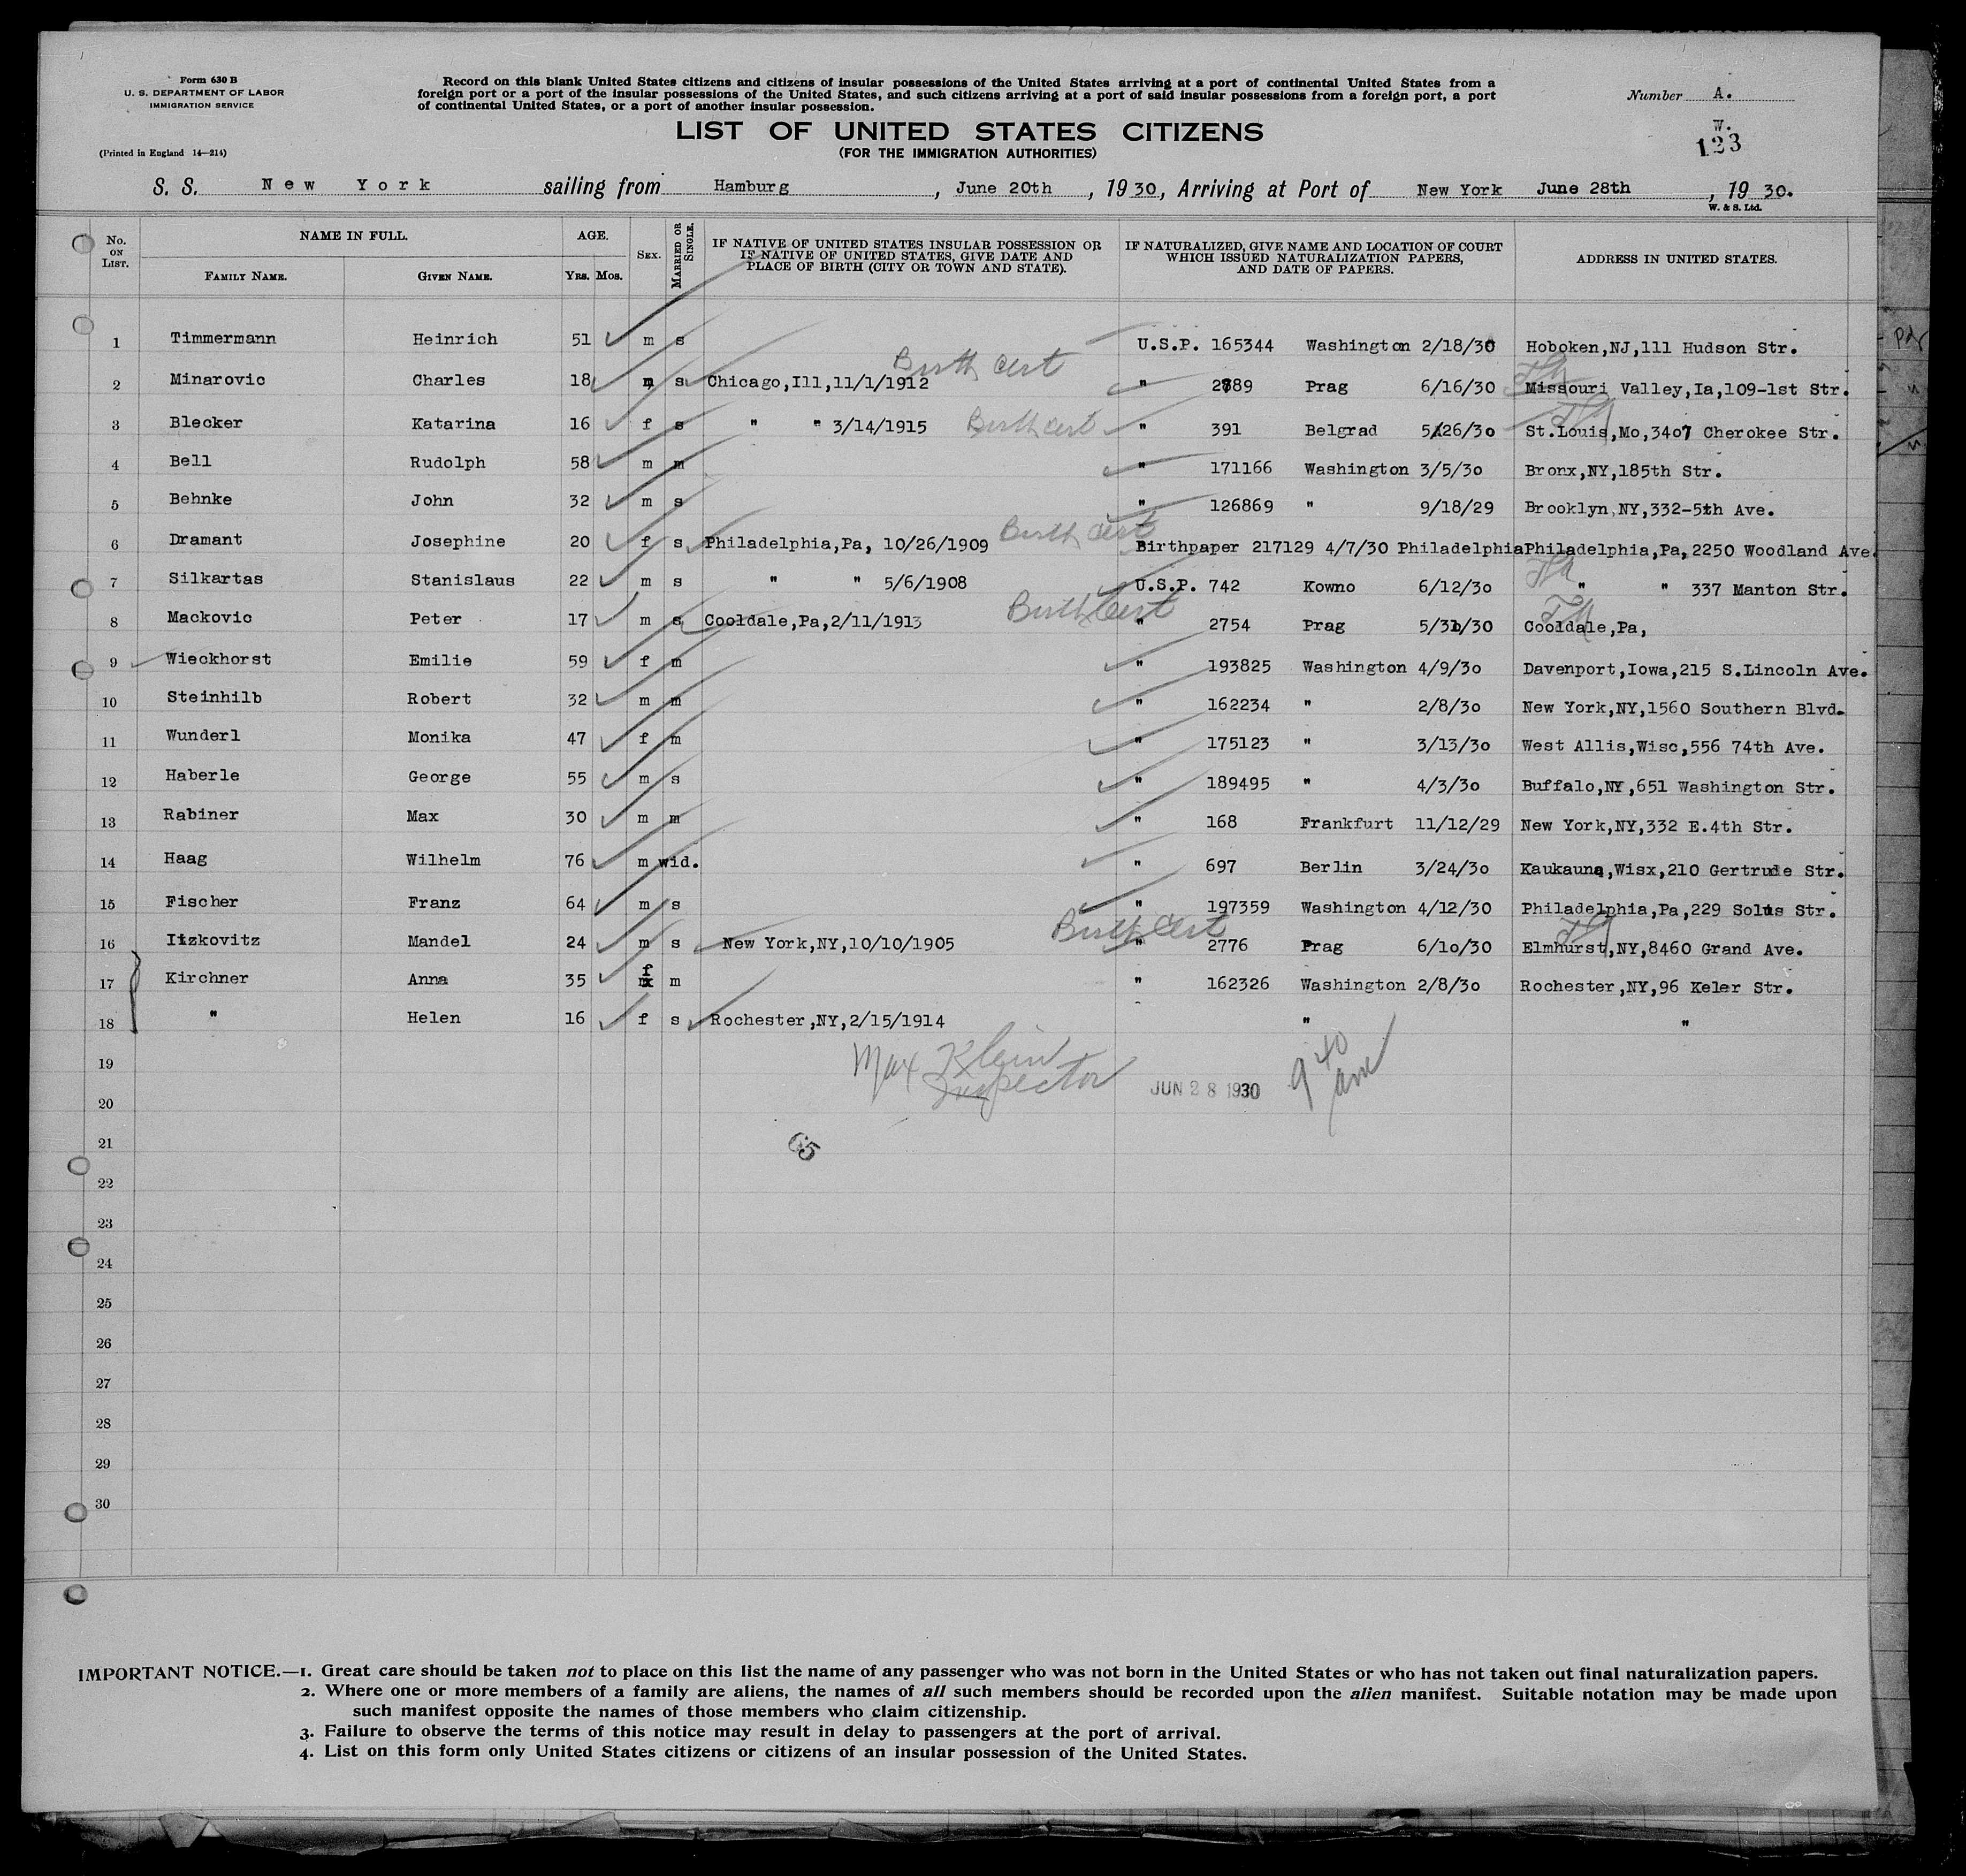 Form 630 B
U. S. DEPARTMENT OF LABOR
IMMIGRATION SERVICE
(Printed in England 14—214)
Record on this blank United States citizens and citizens of insular possessions of the United States arriving at a port of continental United States from a
foreign port or a port of the insular possessions of the United States, and such citizens arriving at a port of said insular possessions from a foreign port, a port
of continental United States, or a port of another insular possession.
Number A.
LIST OF UNITED STATES CITIZENS
(FOR THE IMMIGRATION AUTHORITIES)
W.
123
S. S. New York sailing from Hamburg, June 20th, 1930, Arriving at Port of New York June 28th, 1930.
W. & S. Ltd.
No. ON LIST. NAME IN FULL. FAMILY NAME. GIVEN NAME. AGE. YRS. MOS. SEX. MARRIED OR SINGLE. IF NATIVE OF UNITED STATES INSULAR POSSESSION OR IF NATIVE OF UNITED STATES, GIVE DATE AND PLACE OF BIRTH (CITY OR TOWN AND STATE). IF NATURALIZED, GIVE NAME AND LOCATION OF COURT WHICH ISSUED NATURALIZATION PAPERS, AND DATE OF PAPERS. ADDRESS IN UNITED STATES.
1 Timmermann Heinrich 51 m s U.S.P. 165344 Washington 2/18/30 Hoboken,NJ,111 Hudson Str.
2 Minarovic Charles 18 m s Chicago,Ill,11/1/1912 Birth Cert " 2789 Prag 6/16/30 Missouri Valley,Ia,109-1st Str.
3 Blecker Katarina 16 f s " " 3/14/1915 Birth Cert " 391 Belgrad 5/26/30 St.Louis,Mo,3407 Cherokee Str.
4 Bell Rudolph 58 m m " 171166 Washington 3/5/30 Bronx,NY,185th Str.
5 Behnke John 32 m s " 126869 " 9/18/29 Brooklyn,NY,332-5th Ave.
6 Dramant Josephine 20 f s Philadelphia,Pa, 10/26/1909 Birth Cert Birthpaper 217129 4/7/30 Philadelphia Philadelphia,Pa,2250 Woodland Ave.
7 Silkartas Stanislaus 22 m s " " 5/6/1908 U.S.P. 742 Kowno 6/12/30 " " 337 Manton Str.
8 Mackovic Peter 17 m s Cooldale,Pa,2/11/1913 Birth Cert " 2754 Prag 5/31/30 Cooldale,Pa,
9 Wieckhorst Emilie 59 f m " 193825 Washington 4/9/30 Davenport,Iowa,215 S.Lincoln Ave.
10 Steinhilb Robert 32 m m " 162234 " 2/8/30 New York,NY,1560 Southern Blvd.
11 Wunderl Monika 47 f m " 175123 " 3/13/30 West Allis,Wisc,556 74th Ave.
12 Haberle George 55 m s " 189495 " 4/3/30 Buffalo,NY,651 Washington Str.
13 Rabiner Max 30 m m " 168 Frankfurt 11/12/29 New York,NY,332 E.4th Str.
14 Haag Wilhelm 76 m wid. " 697 Berlin 3/24/30 Kaukauna,Wisx,210 Gertrude Str.
15 Fischer Franz 64 m s " 197359 Washington 4/12/30 Philadelphia,Pa,229 Solus Str.
16 Itzkovitz Mandel 24 m s New York,NY,10/10/1905 Birth Cert " 2776 Prag 6/10/30 Elmhurst,NY,8460 Grand Ave.
17 Kirchner Anna 35 f m " 162326 Washington 2/8/30 Rochester,NY,96 Keler Str.
18 " Helen 16 f s Rochester,NY,2/15/1914 " "
19 Max Klein
Inspector JUN 28 1930 9 40 am
20
21 65
22
23
24
25
26
27
28
29
30
IMPORTANT NOTICE.—1. Great care should be taken not to place on this list the name of any passenger who was not born in the United States or who has not taken out final naturalization papers.
2. Where one or more members of a family are aliens, the names of all such members should be recorded upon the alien manifest. Suitable notation may be made upon
such manifest opposite the names of those members who claim citizenship.
3. Failure to observe the terms of this notice may result in delay to passengers at the port of arrival.
4. List on this form only United States citizens or citizens of an insular possession of the United States.